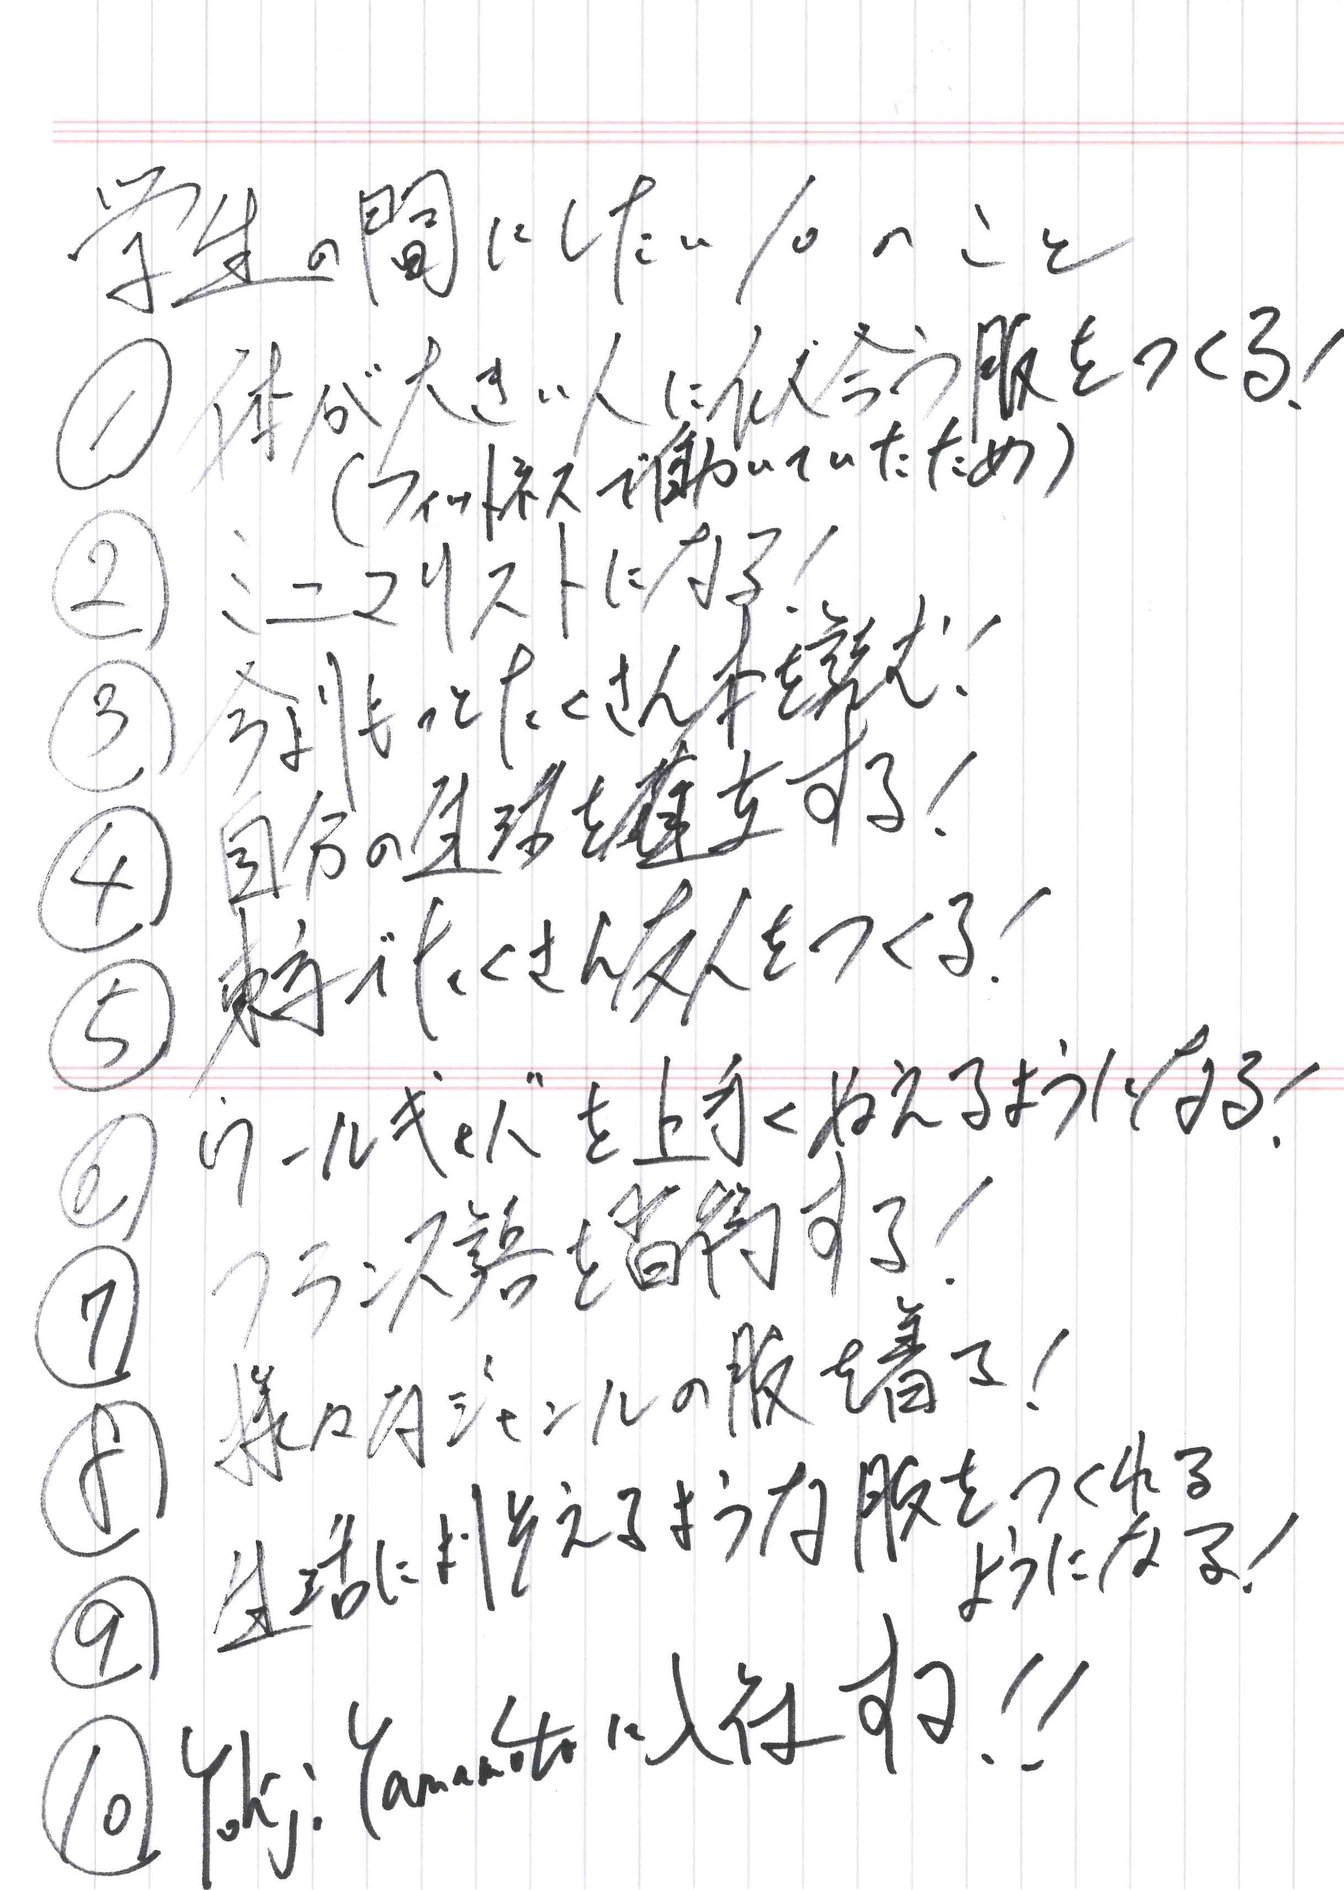 学生の間にしたい10のこと
① 体が大きい人に似合う服をつくる!
(フィットネスで働いていたため)
② ミニマリストになる!
③ 今よりもっとたくさん本を読む!
④ 自分の生形を確立する!
⑤ 東京でたくさん友人をつくる!
⑥ ウールギャバを上手くぬえるようになる!
⑦ フランス語を習得する!
⑧ 様々なジャンルの服を着る!
⑨ 生活に寄りそえるような服をつくれる
ようになる!
⑩ Yohji Yamamotoに入社する!!